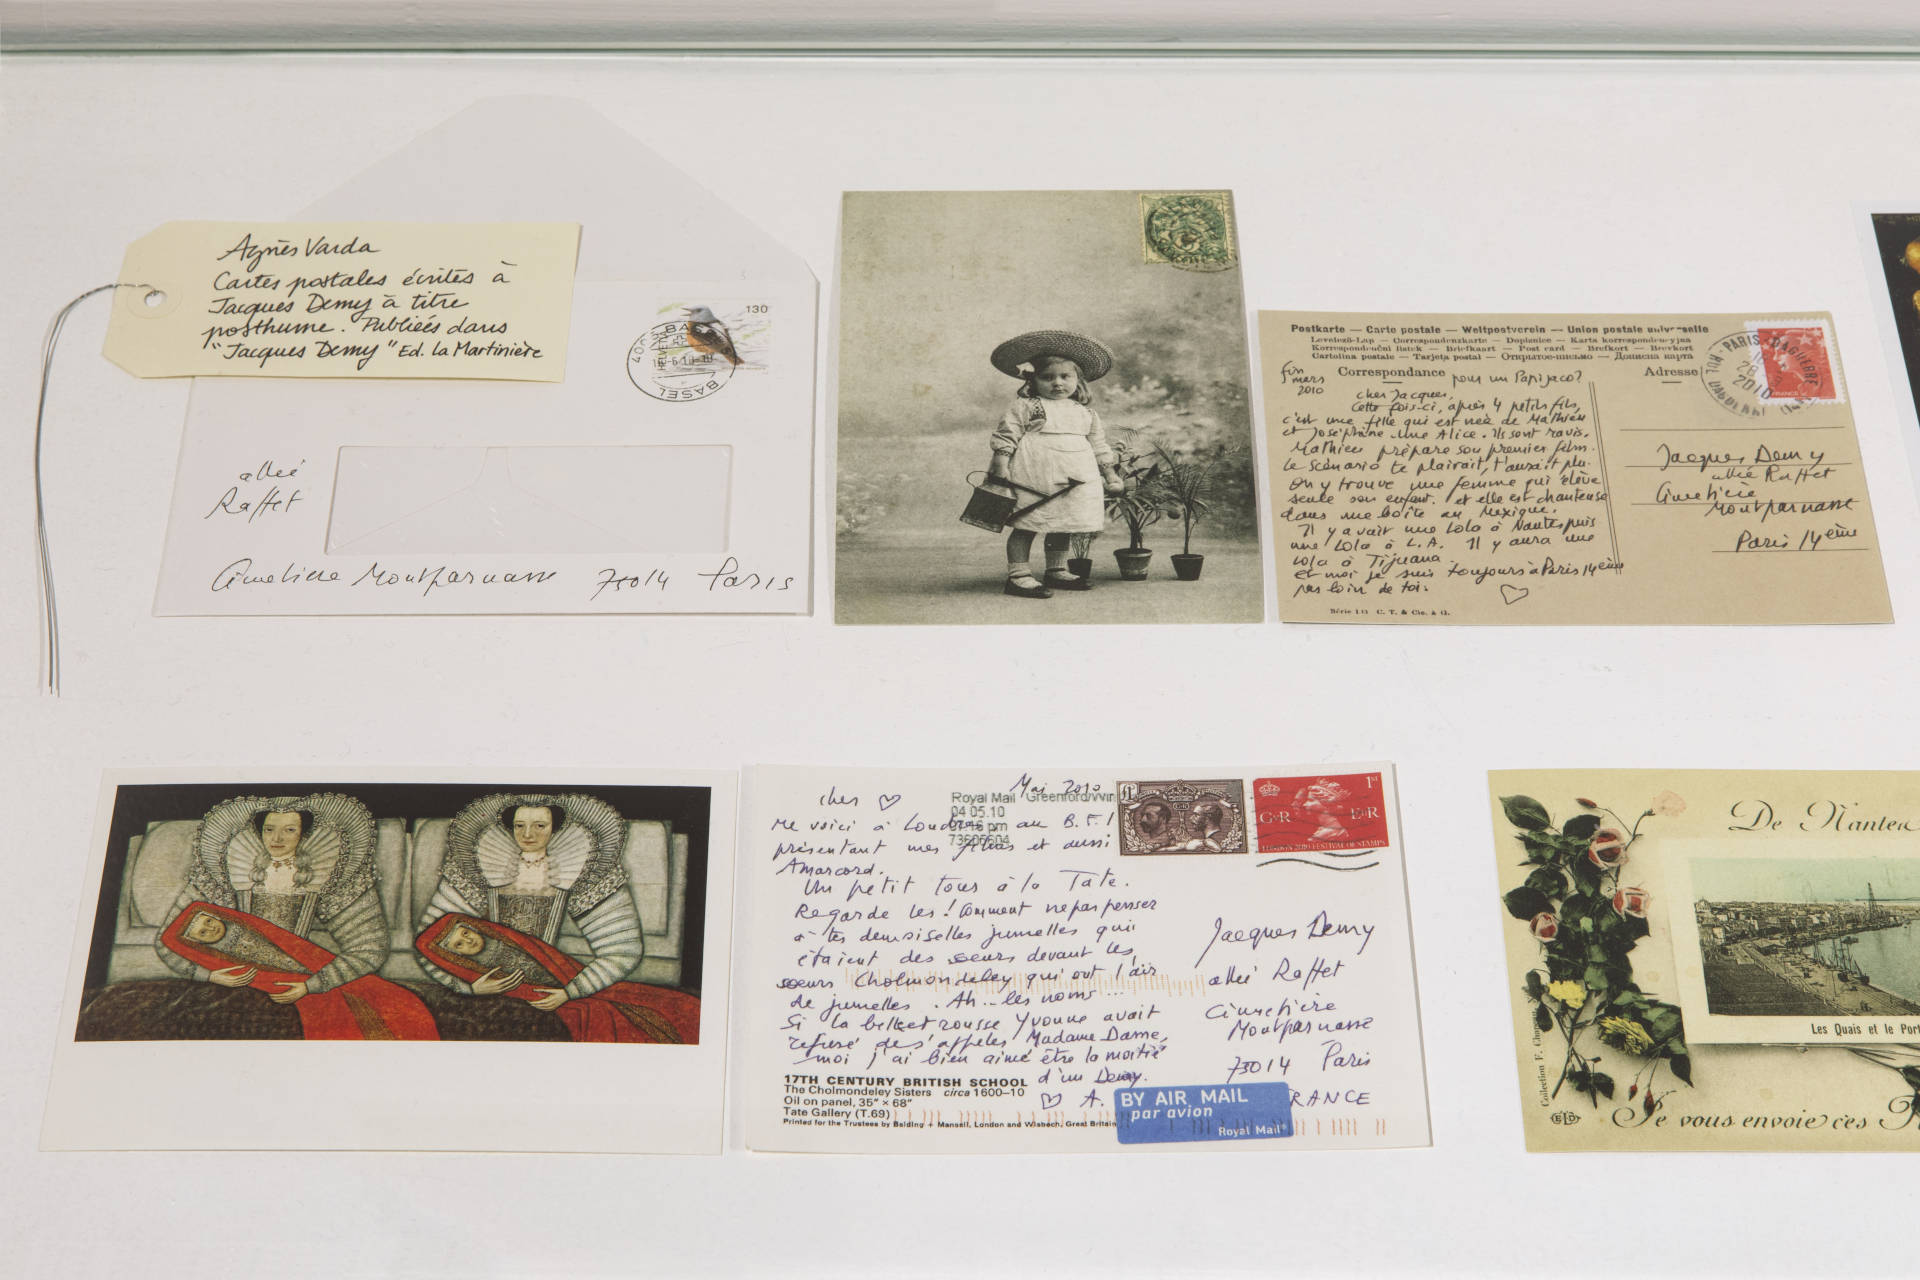 Agnès Varda
Cartes postales écrites à
Jacques Demy à titre
posthume. Publiées dans
"Jacques Demy" Ed. la Martinière
130
HELVETIA
BASEL
BASEL
allée
Raffet
Cimetière Montparnasse 75014 Paris
Postkarte — Carte postale — Weltpostverein — Union postale universelle
Levelezö-Lap — Correspondenzkarte — Dopisnice — Karta korespondencyjna
Korrespondenční lístek — Briefkaart — Post card — Brefkort — Brevkort
Cartolina postale — Tarjeta postal — Открытое письмо — Дописна карта
Correspondance
Adresse
fin mars 2010
pour un Papijaco?
cher Jacques,
Cette fois-ci, après 4 petits fils,
c'est une fille qui est née de Mathieu
et Joséphine. Une Alice. Ils sont ravis.
Mathieu prépare son premier film.
Le scénario te plairait, t'aurait plu.
On y trouve une femme qui élève
seule son enfant. et elle est chanteuse
dans une boîte au Mexique.
Il y avait une Lola à Nantes puis
une Lola à L.A. Il y aura une
Lola à Tijuana.
Et moi je suis toujours à Paris 14ème
pas loin de toi.
Série 133 C. T. & Cie. à G.
PARIS DAGUERRE
2010
FRANCE
Jacques Demy
allée Raffet
Cimetière
Montparnasse
Paris 14ème
Mai 2010
cher ♡
Royal Mail Greenford/Win
04.05.10
pm
73600604
Me voici à Londres au B.F.I
présentant mes films et aussi
Amarcord.
Un petit tour à la Tate.
Regarde les! Comment ne pas penser
à tes demoiselles jumelles qui
étaient des sœurs devant les
sœurs Cholmondeley qui ont l'air
de jumelles. Ah... les noms...
Si la belle et rousse Yvonne avait
refusé de s'appeler Madame Dame,
moi j'ai bien aimé être la moitié
d'un Demy.
♡ A.
17TH CENTURY BRITISH SCHOOL
The Cholmondeley Sisters circa 1600–10
Oil on panel, 35" × 68"
Tate Gallery (T.69)
Printed for the Trustees by Balding + Mansell, London and Wisbech, Great Britain
£1
1ST
G R
E R
LONDON 2010 FESTIVAL OF STAMPS
Jacques Demy
allée Raffet
Cimetière
Montparnasse
75014 Paris
FRANCE
BY AIR MAIL
par avion
Royal Mail®
De Nantes
Les Quais et le Port
Collection F. Chapeau
ELD
Je vous envoie ces